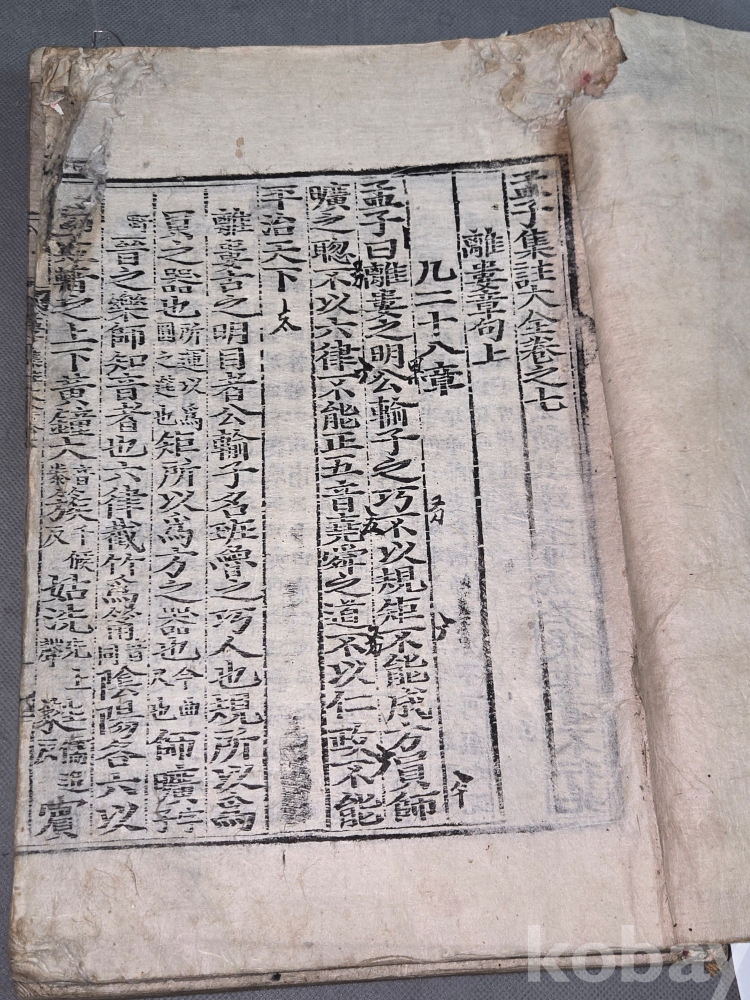 孟子集註大全卷之七
離婁章句上
凡二十八章
孟子曰離婁之明公輸子之巧不以規矩不能成方員師
曠之聰不以六律不能正五音堯舜之道不以仁政不能
平治天下
離婁古之明目者公輸子名班魯之巧人也規所以爲
員之器也所運以爲圜之筳也矩所以爲方之器也今曲尺也師曠字
晉之樂師知音者也六律截竹爲筩音同陰陽各六以
之上下黃鐘大音泰簇千候反姑洗
kobay